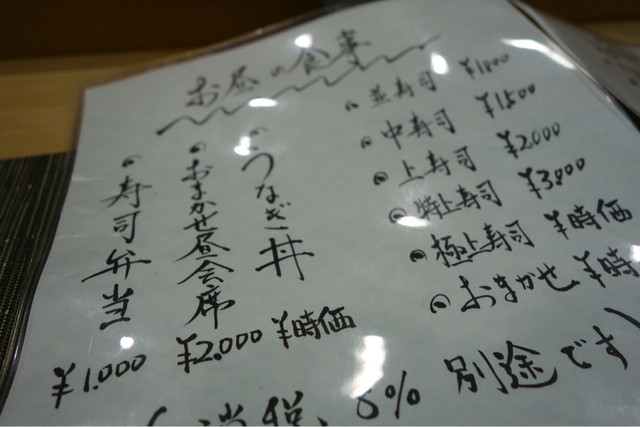 お昼の食事
並寿司 ¥1800
中寿司 ¥1500
上寿司 ¥2000
特上寿司 ¥3800
極上寿司 ¥時価
おまかせ ¥時
うなぎ丼 ¥時価
おまかせ昼会席 ¥2.000
寿司弁当 ¥1.000
(消税、8% 別途です)